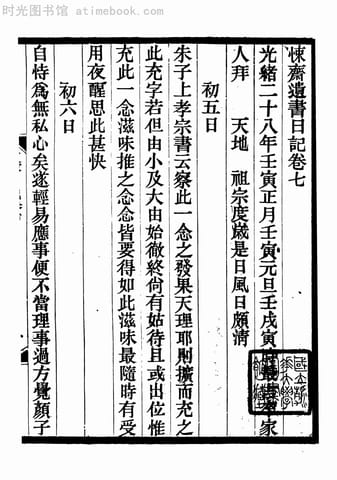 时光图书馆 atimebook.com
悚齋遺書日記卷七
光緒二十八年壬寅正月壬寅元旦壬戌寅時
家
人拜 天地 祖宗度歲是日風日頗清
初五日
朱子上孝宗書云察此一念之發果天理耶則擴而充之
此充字若但由小及大由始徹終尙有姑待且或出位惟
充此一念滋味推之念念皆要得如此滋味最隨時有受
用夜醒思此甚快
初六日
自恃爲無私心矣遂輕易應事便不當理事過方覺顏子